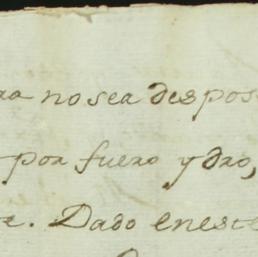 ra no sea despos
por fuero y dro,
e. Dado en este